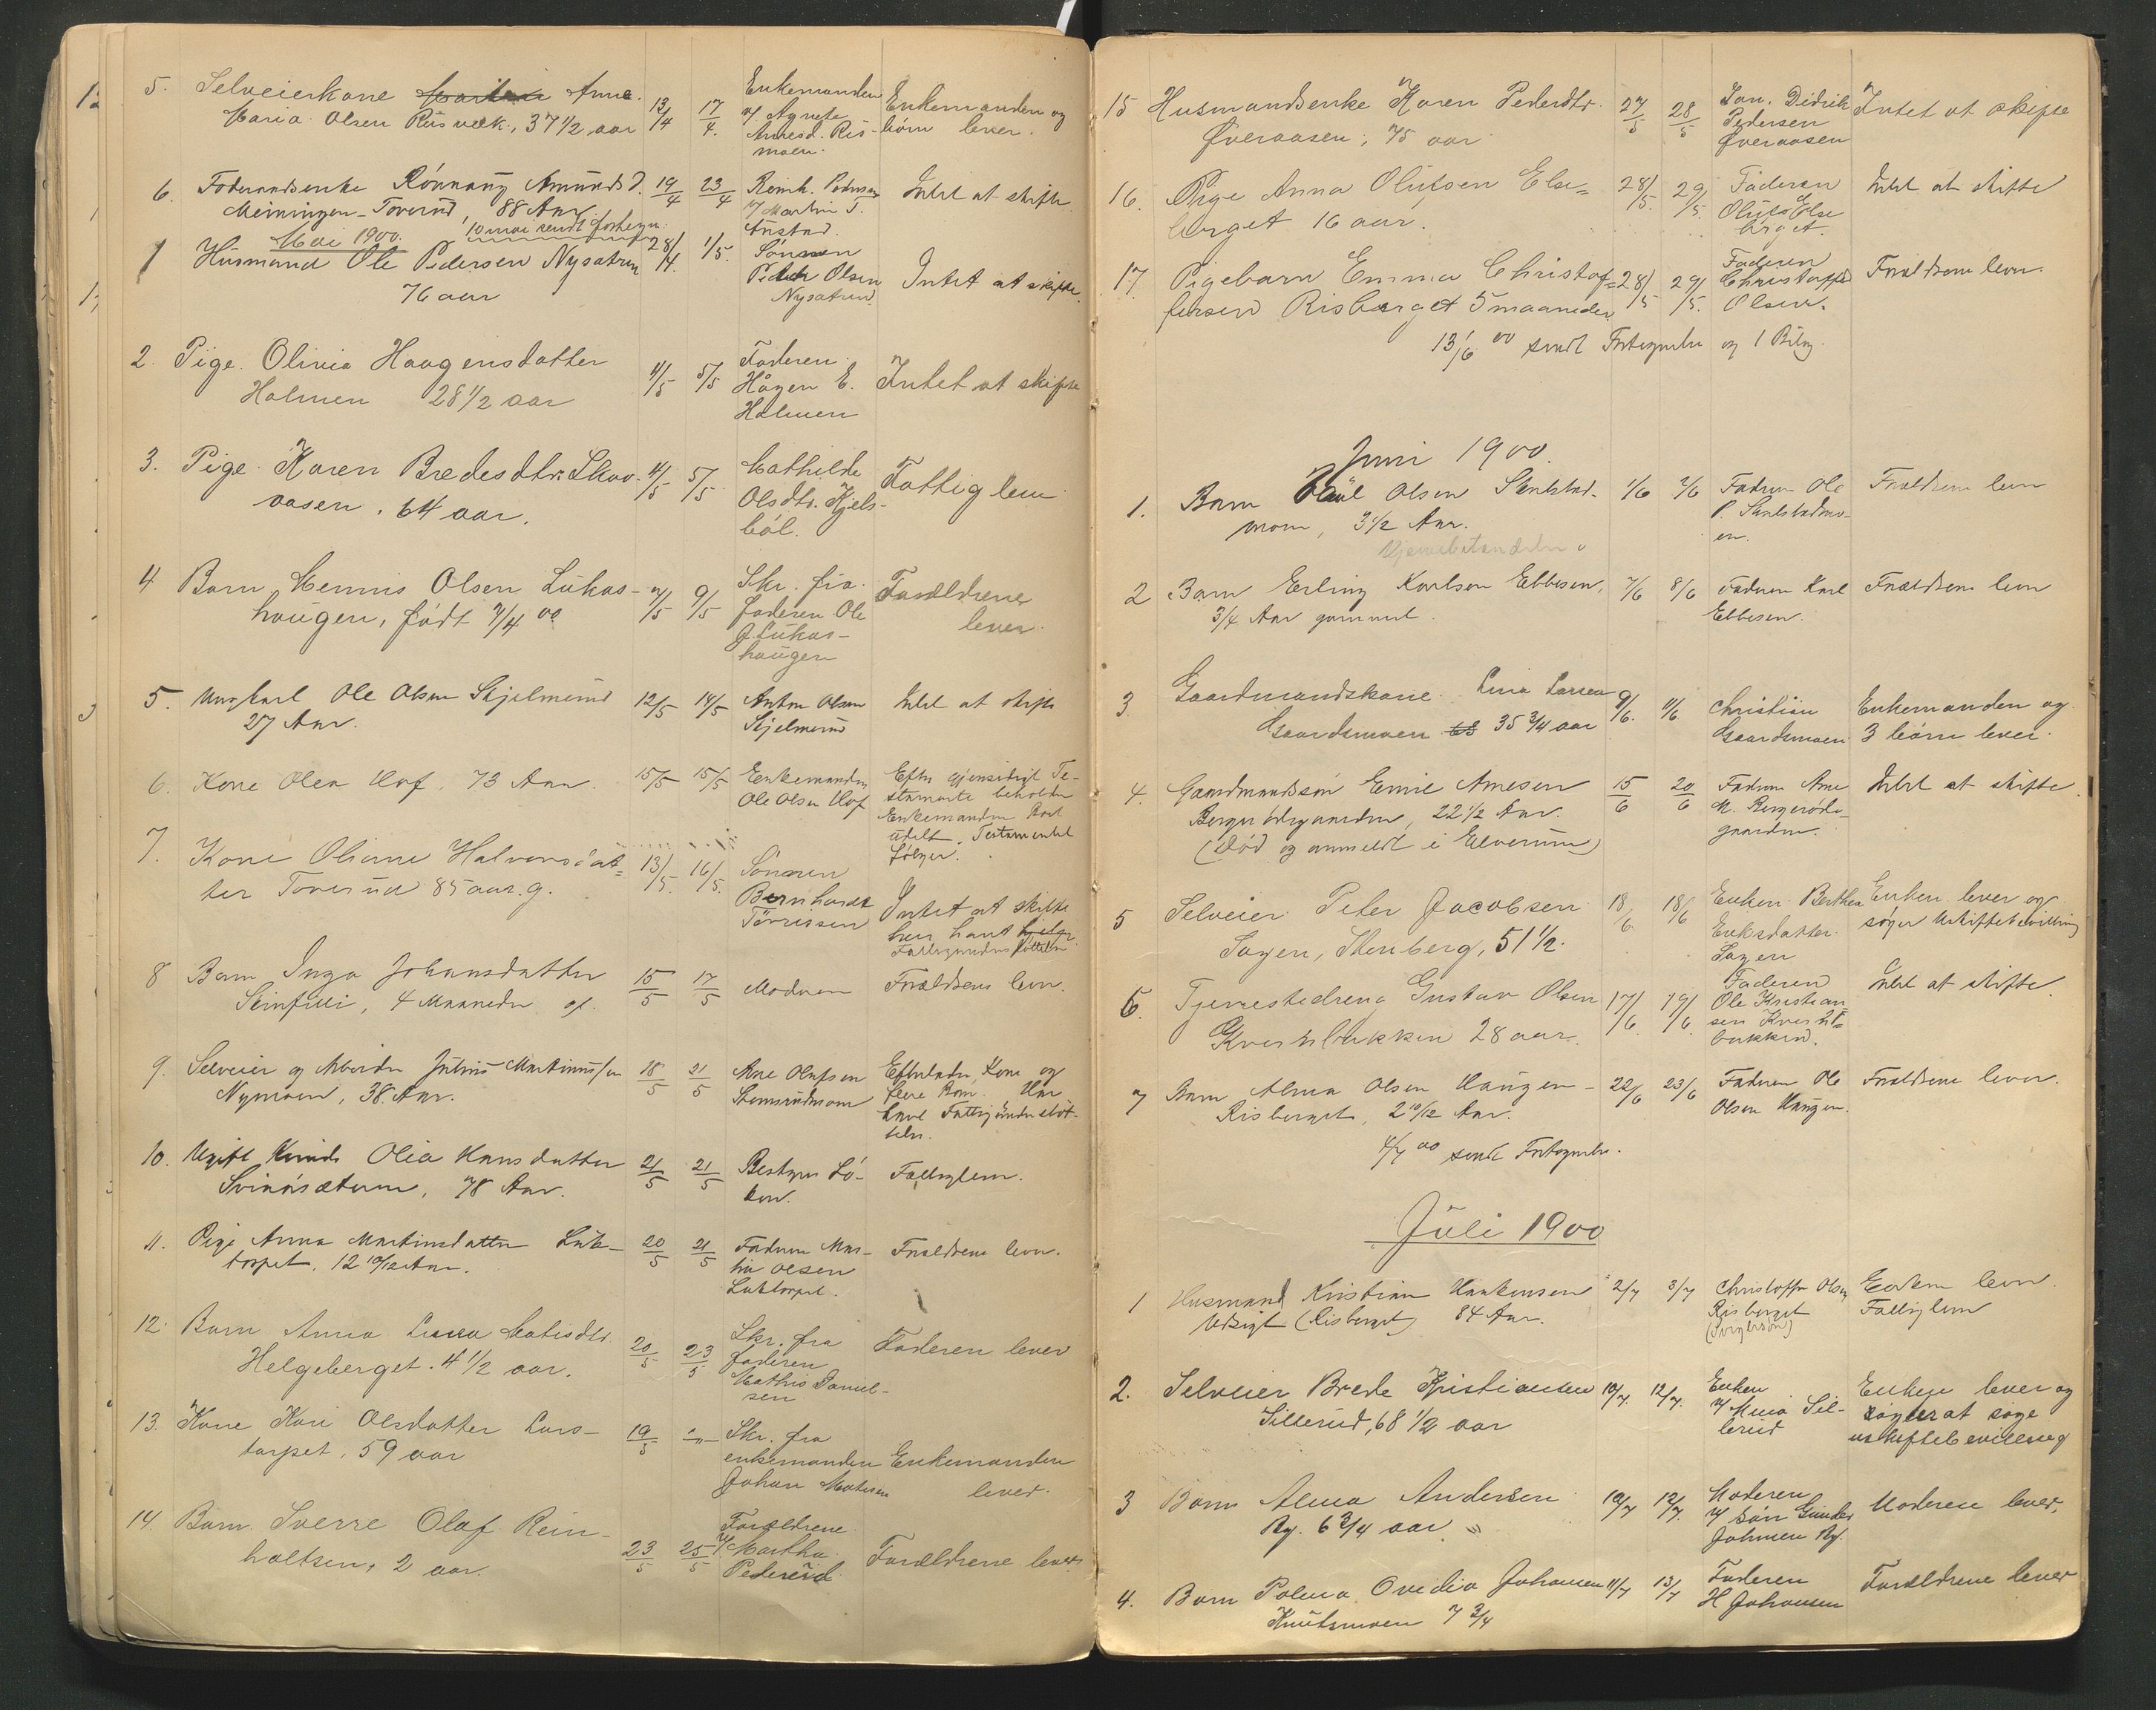 5. Selveierkone Anne
Maria Olsen Rusvæk, 37 1/2 aar 13/4 17/4. Enkemanden v/ Agnete Arnesd. Rismoen. Enkemanden og børn lever.
6. Foderaadsenke Rønnaug Amunds d. 19/4 23/4 Reinh. Pedersen v/ Martin T. Intet at skifte.
Meiningen-Toverud, 88 Aar
Mai 1900. 10 mai sendt fortegn.
1 Husmand Ole Pedersen Nysætren 28/4. 1/5. Sønnen Peder Olsen Nysætren. Intet at skifte.
76 aar
2. Pige Olivia Haagensdatter 4/5 5/5 Faderen Hågen E. Holmen Intet at skifte
Holmen 28 1/2 aar
3. Pige Karen Bredesdtr. Skov- 4/5 5/5 Mathilde Olsdtr. Kjelsbøl. Fattiglem
aasen, 64 aar.
4 Barn Olsen Lukas- 7/5 9/5 Skr. fra faderen Ole J. Lukashaugen Forældrene lever.
haugen, født 7/4 00
5. Ungkarl Ole Olsen Skjelmerud 12/5 14/5 Anton Olsen Skjelmerud Intet at skifte
27 Aar.
6. Kone Olea Hof, 73 Aar. 15/5 15/5 Enkemanden Ole Olsen Hof Efter gjensidigt Testamente beholder Enkemanden Boet udelt. Testamentet følger.
7. Kone Oliane Halvorsdat- 13/5. 16/5. Sønnen Bernhardt Tørrissen Intet at skifte hun havt Fattigunderstøttelse
ter Toverud 85 aar. g.
8 Barn Inga Johansdatter 15/5 17/5 Moderen Forældrene lever.
4 Maaneder gl.
9. Selveier og Arbeider Julius Martinussen 18/5 21/5 Arne Olafsen Stemsrudmoen Efterlader Kone og flere Børn. Har havt Fattigunderstøttelse.
Nymoen, 38 Aar.
10. Ugift Kvinde Olia Hansdatter 21/5 21/5 Bestyrer Løken. Fattiglem.
Svinåsæteren, 78 Aar.
11. Pige Anna Martinsdatter Luk- 20/5 21/5 Faderen Martin Olsen Luktorpet. Forældrene lever.
torpet. 12 10/12 Aar.
12. Barn Anna Lucca Matisdtr 20/5 23/5 Skr. fra faderen Mathis Danielsen Faderen lever
Helgeberget. 4 1/2 aar.
13. Kone Kari Olsdatter Lars- 19/5 -"- Skr. fra enkemanden Johan Matisen Enkemanden lever.
torpet, 59 aar
14. Barn Sverre Olaf Rein- 23/5 25/5 Forældrene v/ Martha Pedersd. Forældrene lever.
holtsen, 2 aar.
15 Husmandsenke Karen Pedersdtr. 27/5 28/5 Jon. Didrik Pedersen Øveraasen Intet at skifte
Øveraasen, 75 aar
16. Pige Anna Olufsen Else- 28/5. 29/5. Faderen Oluf Elseberget. Intet at skifte
berget 16 aar.
17. Pigebarn Emma Christof- 28/5 29/5. Faderen Christoffer Olsen. Forældrene lever.
fersen Risberget 5 maaneder
13/6 00 sendt Fortegnelse og 1 Bilag.
Juni 1900.
1. Barn Olsen 1/6 2/6 Faderen Ole Forældrene lever
moen, 3 1/2 Aar.
2 Barn Erling Karlsen Ebbesen, 7/6 8/6 Faderen Karl Ebbesen. Forældrene lever
3/4 Aar gammel.
3 Gaardmandskone Lina Larsen 9/6. 11/6. Christian Gaardsmoen Enkemanden og 3 børn lever.
Gaardsmoen 35 3/4 aar
4. Gaardmandssøn Emil Arnesen 15/6 20/6 Faderen Arne M. Bergerødegaarden. Intet at skifte.
Bergerødegaarden, 22 1/2 Aar.
(død og anmeldt i Elverum)
5 Selveier Peter Jacobsen 18/6. 18/6 Enken Berthea Eriksdatter Sagen Enken lever og søger Uskiftetbevilling
Sagen, Stenberg, 51 1/2.
6. Tjenestedreng Gustav Olsen 17/6. 19/6. Faderen Ole Kristiansen Kvesetbakken. Intet at skifte.
Kvesetbakken 28 aar.
7 Barn Alma Olsen Haugen- 22/6 23/6 Faderen Ole Olsen Haugen. Forældrene lever.
Risberget, 2 10/12 Aar.
4/7 00 sendt Fortegnelse.
Juli 1900
1 Husmand Kristian Haakensen 2/7 3/7 Christoffer Olsen Risberget Enken lever. Fattiglem
Udsigt (Risberget) 84 Aar.
2. Selveier Brede Kristiansen 10/7. 12/7. Enken v/ Mina Sillerud Enken lever og agter at søge uskiftebevilling
Sillerud, 68 1/2 aar
3 Barn Alma Andersen 10/7 12/7. Moderen v/ søn Gunder Johnsen By. Moderen lever.
By. 6 3/4 aar
4. Barn Palma Ovidia Johansen 11/7 13/7 Faderen H Johansen Forældrene lever
Knutsmoen 7 3/4